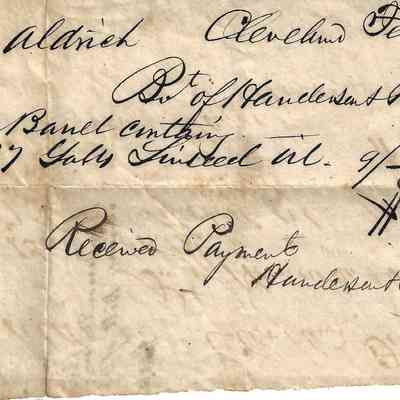 Aldrich Cleveland Fe
Bot of Handerson &
Barrel containing
7 Galls Linseed Oil. 9/-
Received Payment
Handerson &